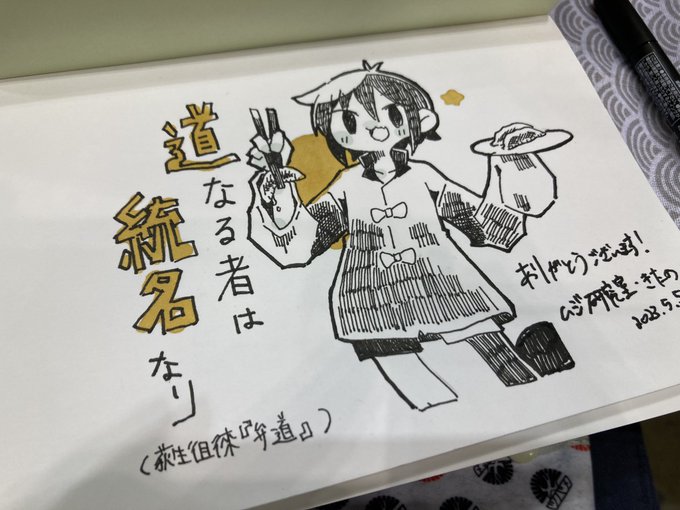 道なる者は
統名なり
(荻生徂徠『弁道』)
ありがとうございます!
ムジ研究室・きたの
2023.5.5